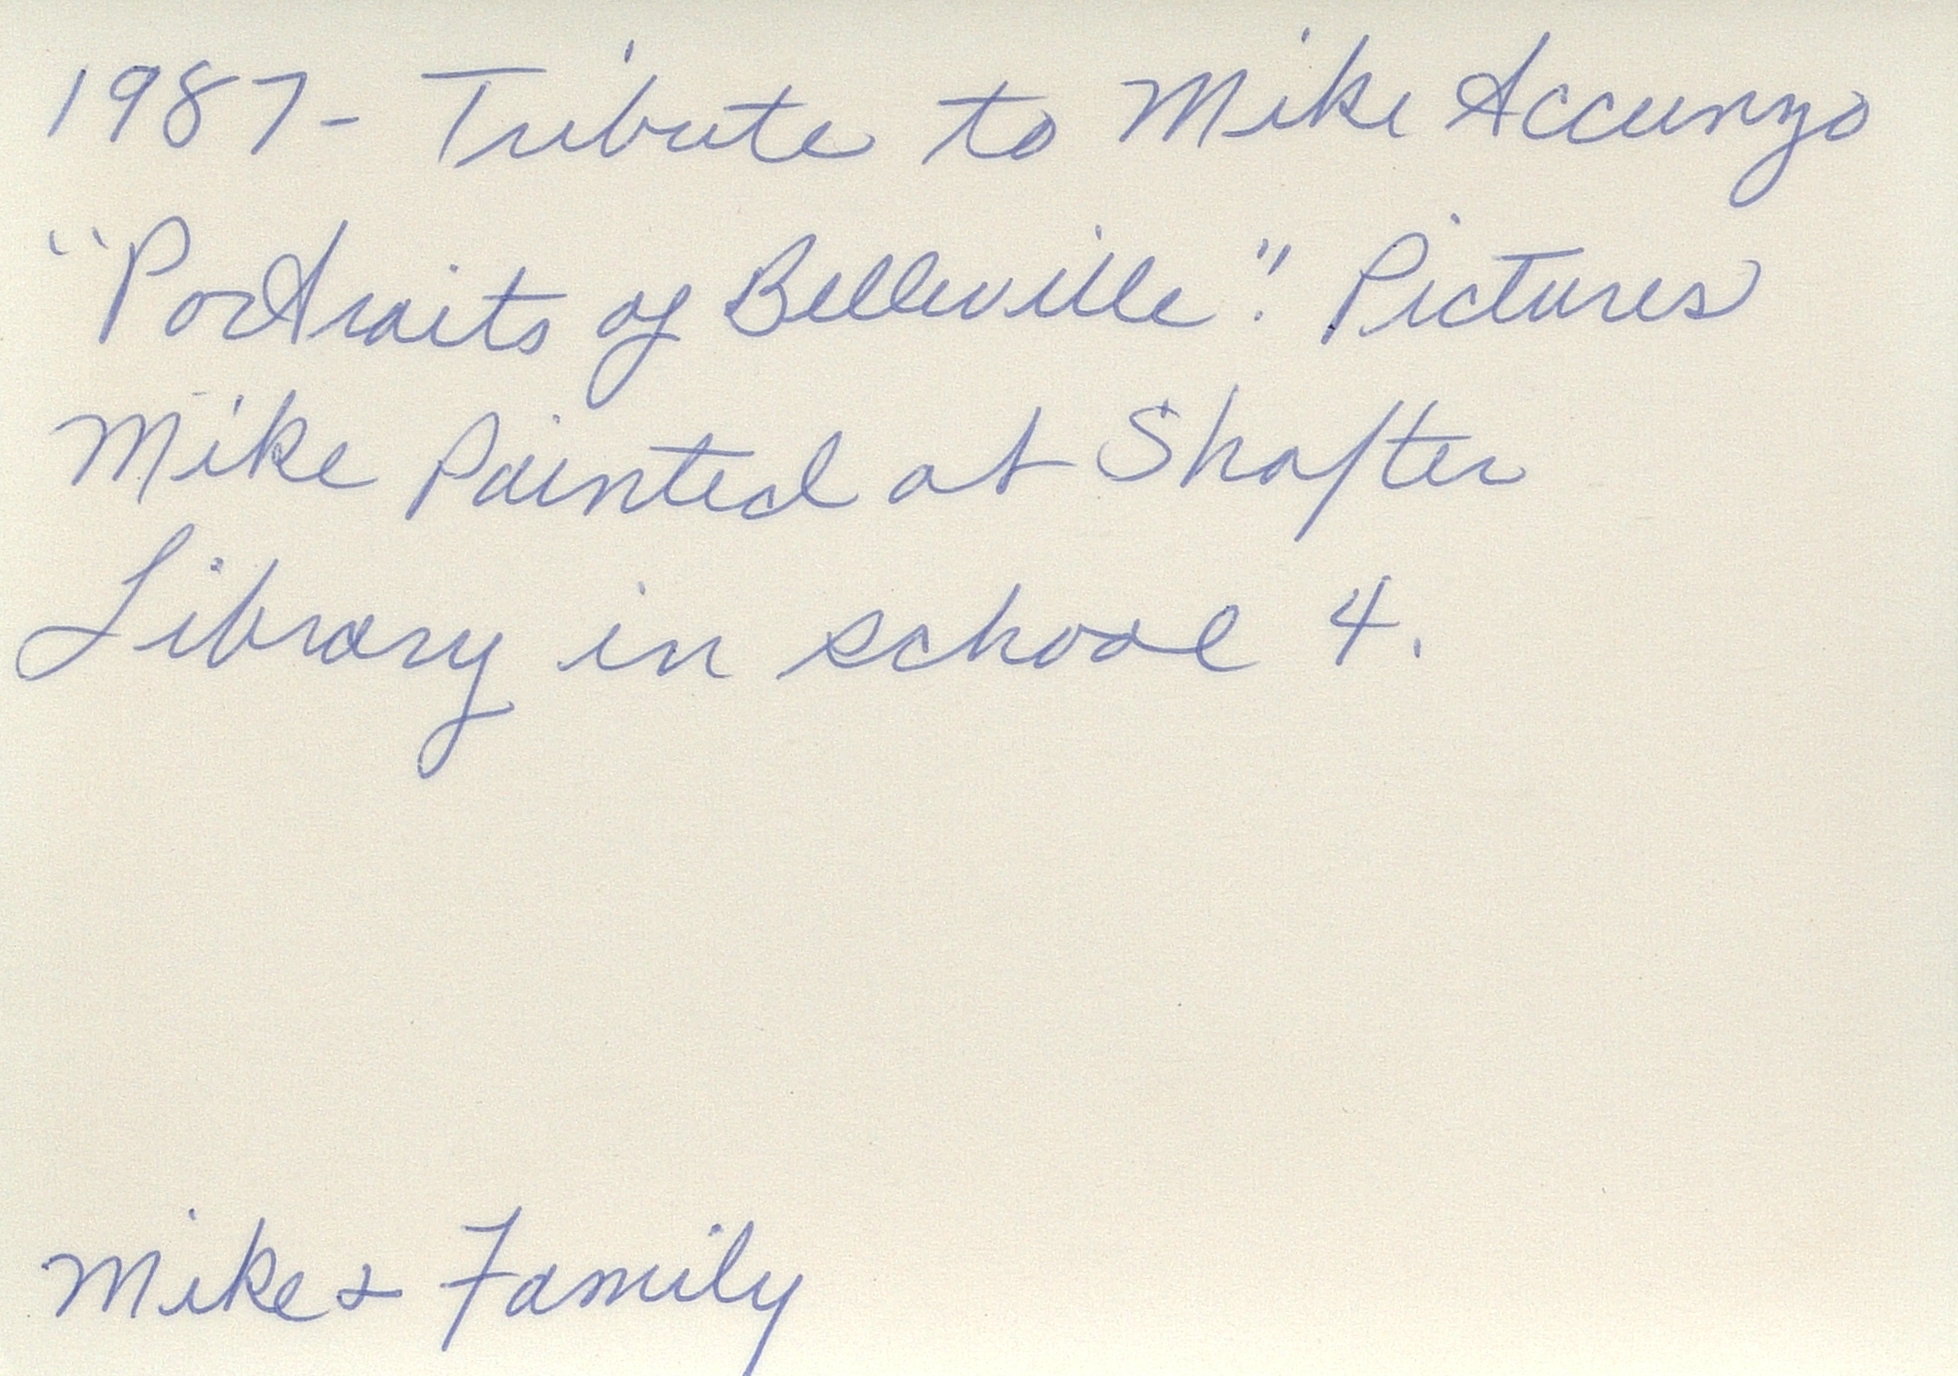 1987- Tribute to Mike Accunzo
"Portraits of Belleville". Pictures
Mike Painted at Shafter
Library in school 4.
Mike & Family